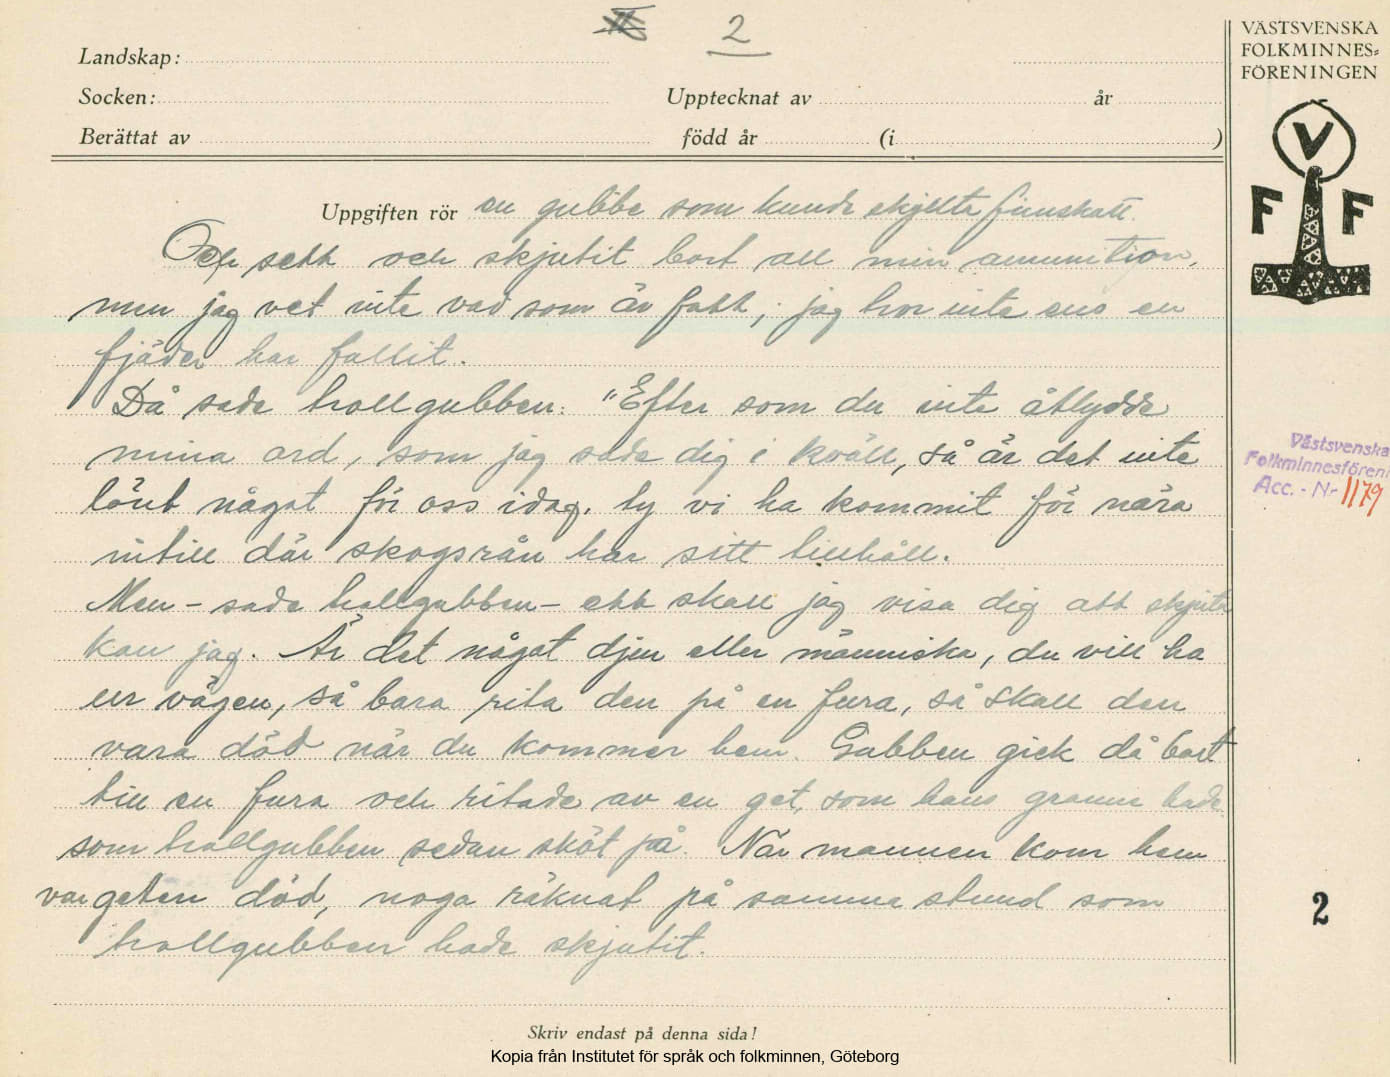 2
VÄSTSVENSKA
FOLKMINNES=
FÖRENINGEN
Landskap:
Socken:
Upptecknat av
år
Berättat av
född år
(i
)
V
F F
Uppgiften rör en gubbe som kunde skjuta
Och sett och skjutit bort all min ammunition,
men jag vet inte vad som är fatt, jag tror inte ens en
fjäder har fallit.
Då sade trollgubben: "Efter som du inte åtlydde
mina ord, som jag sade dig i kväll, så är det inte
lönt något för oss idag, ty vi ha kommit för nära
intill där skogsrån har sitt tillhåll.
Men - sade trollgubben - ett skall jag visa dig att skjuta
kan jag. Är det något djur eller människa, du vill ha
ur vägen, så bara rita den på en fura, så skall den
vara död när du kommer hem. Gubben gick då bort
till en fura och ritade av en get, som hans granne hade
som trollgubben sedan sköt på. När mannen kom hem
var geten död, noga räknat på samma stund som
trollgubben hade skjutit.
Västsvenska
Folkminnesföreni
Acc. - Nr 1179
2
Skriv endast på denna sida!
Kopia från Institutet för språk och folkminnen, Göteborg